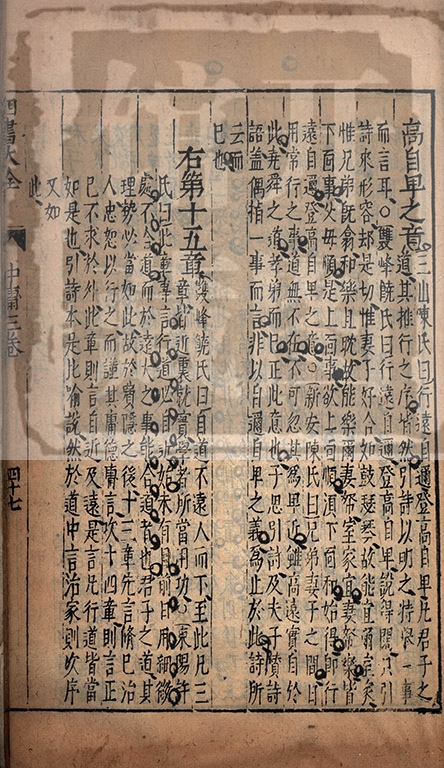 高自卑之意○三山陳氏曰行遠自邇登高自卑凡君子之
道其推行之序皆然引詩以明之特限一事
而言耳○雙峰饒氏曰行遠自邇登高自卑說得闊只引
詩來形容却是切惟妻子好合如鼓瑟琴故能宜爾室家
惟兄弟旣翕和樂且耽故能樂爾妻帑室家宜妻帑樂皆
下面事父母順是上面事欲上面順須下面和始得卽行
遠自邇登高自卑之意○新安陳氏曰兄弟妻子之間日
用常行之事道無不在不可忽其爲卑近雖高遠實自於
此堯舜之道孝弟而已正此意也子思引詩及夫子贊詩
語蓋偶指一事而言非以自邇自卑之義爲止於此詩所
云而
已也
右第十五章雙峰饒氏曰自道不遠人而下至此凡三
章皆近裏就實學者所當用功○東陽許
氏曰此章專言行道必自近始未有目前日用細微
處不合道而於遠大之事能合道者也君子之道其
理勢必當如此故於費隱之後十三章先言脩己治
人忠恕以行之而謹其庸德庸言次十四章則言正
己不求於外此章則言自近及遠是言凡行道皆當
如是也引詩本是比喻說然於道中言治家則次序
又如
此
四書大全
中庸三卷
四十七